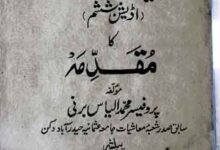 (اڈیشن ششم)
کا
مقدّمہ
مؤلفہ
پروفیسر محمد الیاس برنی
سابق صدر شعبہ معاشیات جامعہ عثمانیہ حیدرآباد دکن